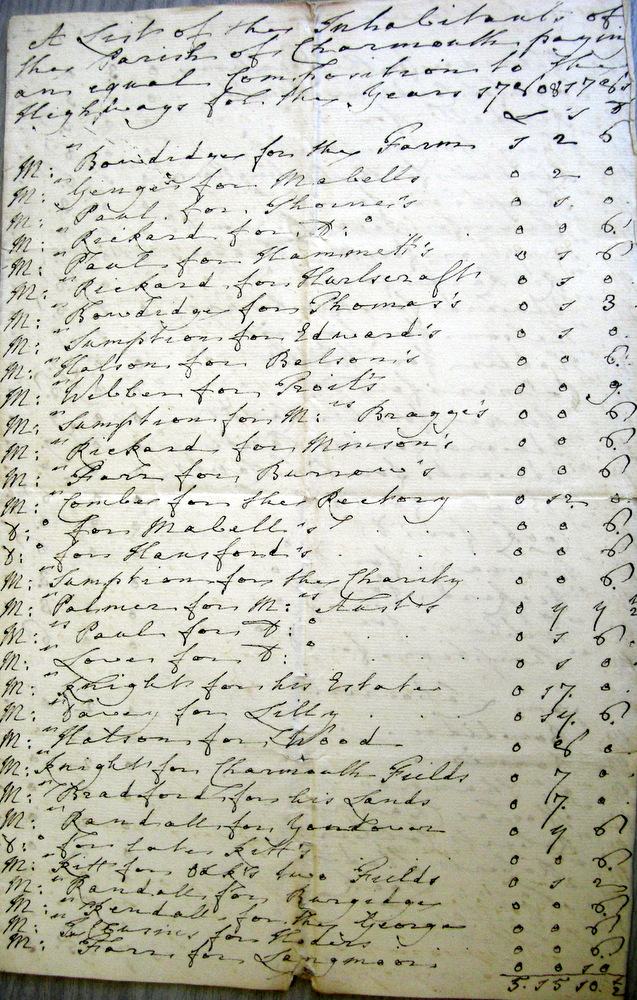 A List of the Inhabitants of
the Parish of Charmouth payin
an equal Composition to the
Highways for the Years
£ s d
M:rs Bowdidge for the Farm 1 2 6
M:rs Genge for Mabells 0 2 0
M:r Paul for Thorne's 0 1 0
M:r Rickard for D:o 0 0 6
M:r Paul for Hammett's 0 1 6
M:r Rickard for Hurlscraft 0 1 0
M:r Bowdidge for Thomas's 0 1 3
M:r Sumption for Edward's 0 1 0
M:r Hatson for Balson's 0 0 6
M:r Webber for 0 0 9
M:r Sumption for M:rs Bragge's 0 0 6
M:r Rickard for Minson's 0 0 6
M:r Farr for Burrow's 0 0 6
M:r Combe for the Rectory 0 12 0
D:o for Mabell's 0 0 6
D:o for Hansford's 0 0 6
M:r Sumption for the Charity 0 0 6
M:r Palmer for M:rs 0
M:r Paul for D:o 0 1 6
M:r Love for D:o 0 1 0
M:r Knight for his Estate 0 17 0
M:r for Lilly 0 14 6
M:r Hatson for Wood 0 0
M:r Knight for Charmouth Fields 0 7 0
M:r Bradford for his Lands 0 7 0
M:r Randall for Yandover 0 6
D:o for Late Kitt's 0 0 6
M:r Kitt for two Fields 0 1 2
M:r Randall for Burgidge 0 0 6
M:r Kendall for the George 0 0 6
M:r for 0 0 6
M:r Farr for Langmoor 0 0 10
5 15 10 1/2